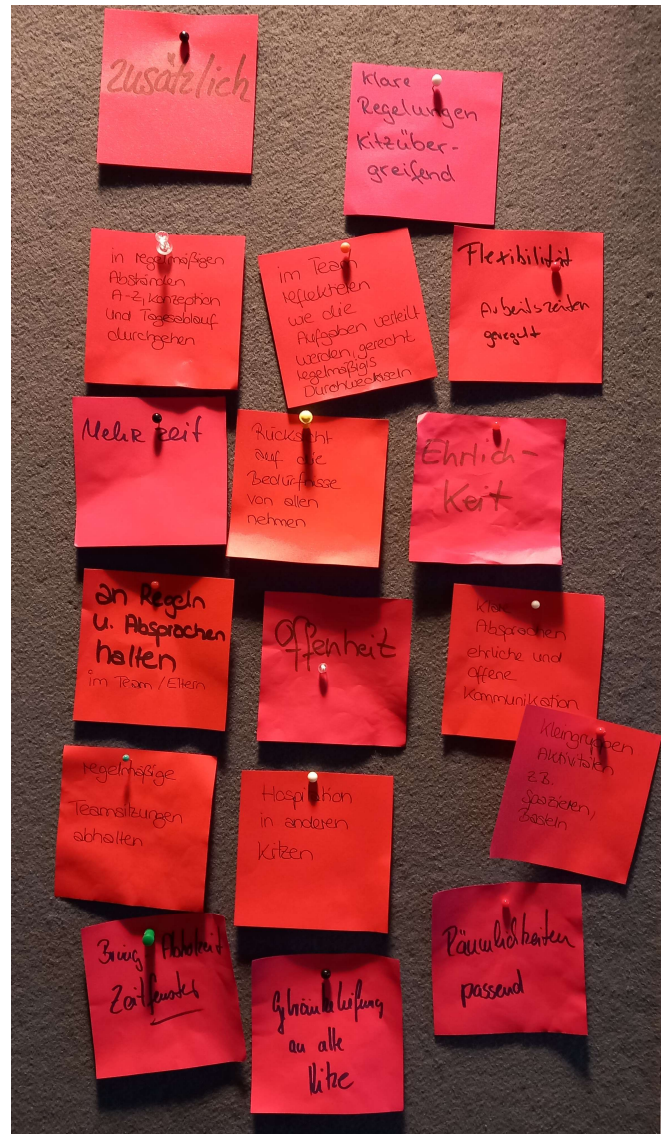 zusätzlich
Klare
Regelungen
Kitzüber-
greifend
in regelmäßigen
Abständen
A-Z, Konzeption
und Tagesablauf
durchgehen
im Team
reflektieren
wie die
Aufgaben verteilt
werden, gerecht
regelmäßigis
Durchwechseln
Flexibilität
Arbeitszeiten
geregelt
Mehr zeit
Rücksicht
auf die
Bedürfnisse
von allen
nehmen
Ehrlich-
keit
an Regeln
u. Absprachen
halten
im Team / Eltern
Offenheit
Klare
Absprachen
ehrliche und
offene
Kommunikation
Kleingruppen
Aktivitäten
z.B.
Spazieren,
Basteln
regelmäßige
Teamsitzungen
abhalten
Hospitation
in anderen
Kitzen
Bring
Zeitfenster
Räumlichkeiten
passend
an alle
Kitze